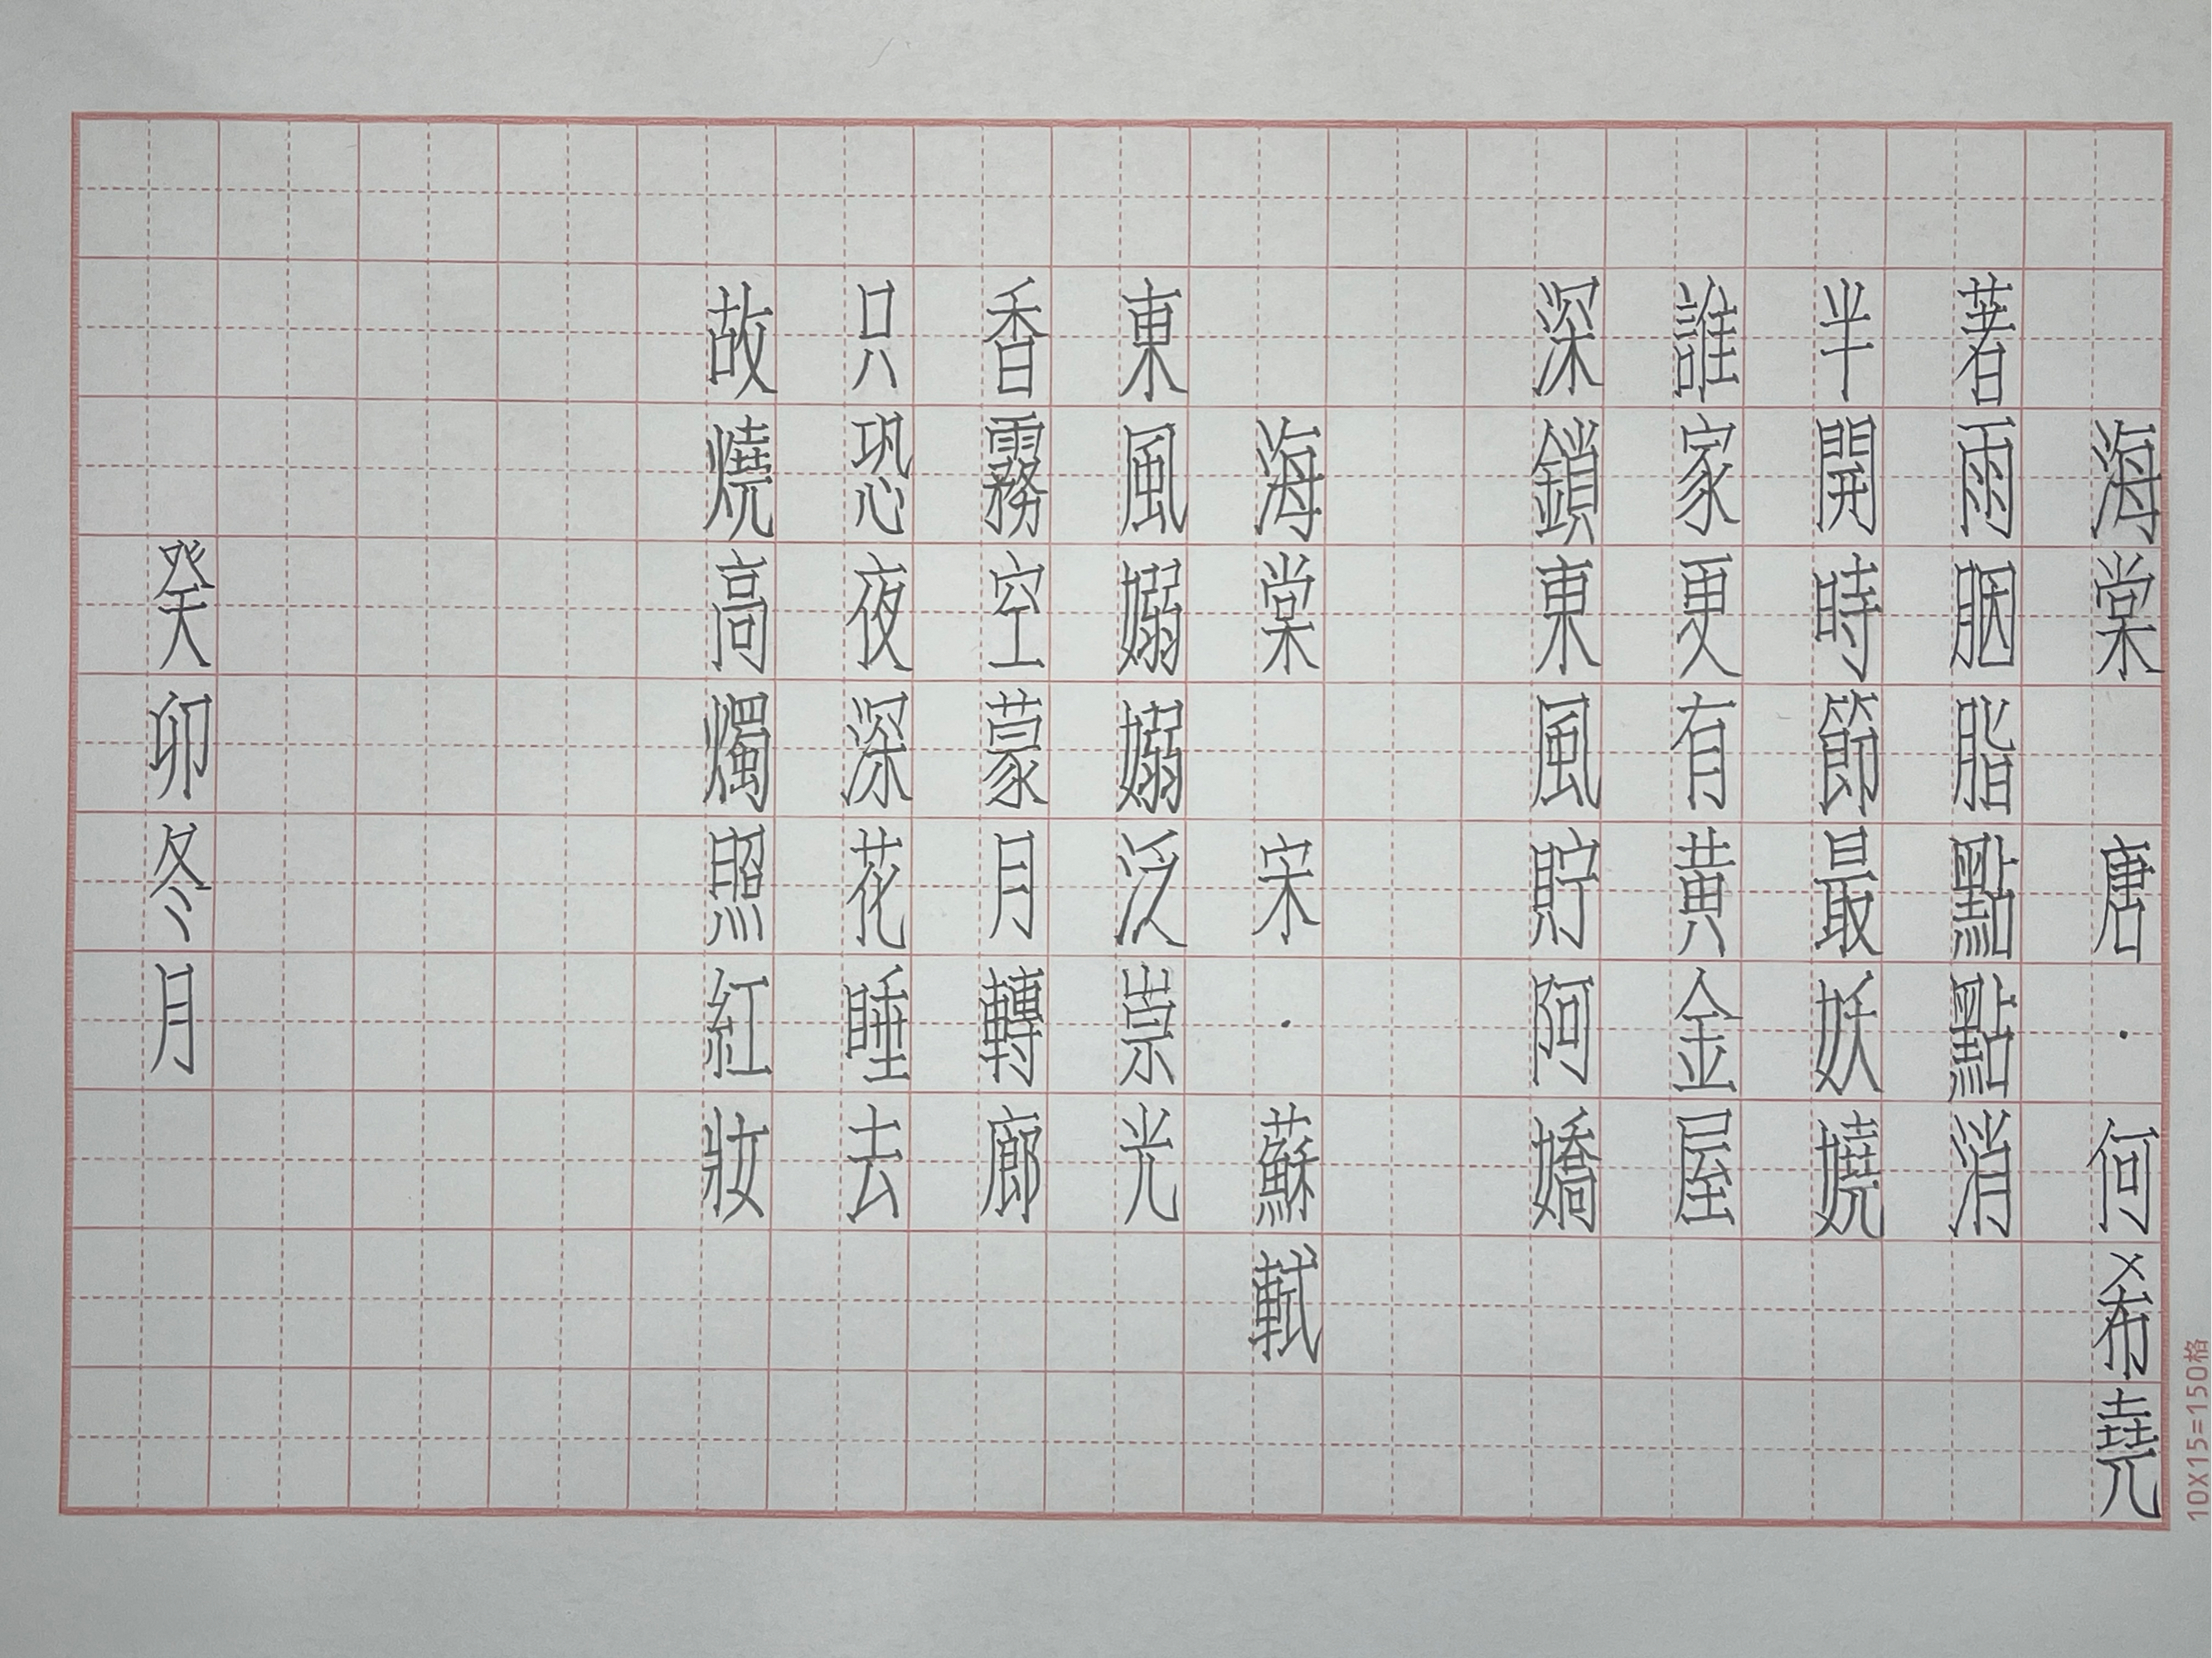 海棠 唐·何希堯
著雨胭脂點點消
半開時節最妖嬈
誰家更有黃金屋
深鎖東風貯阿嬌
海棠 宋·蘇軾
東風嫋嫋泛崇光
香霧空蒙月轉廊
只恐夜深花睡去
故燒高燭照紅妝
癸卯冬月
10X15=150格